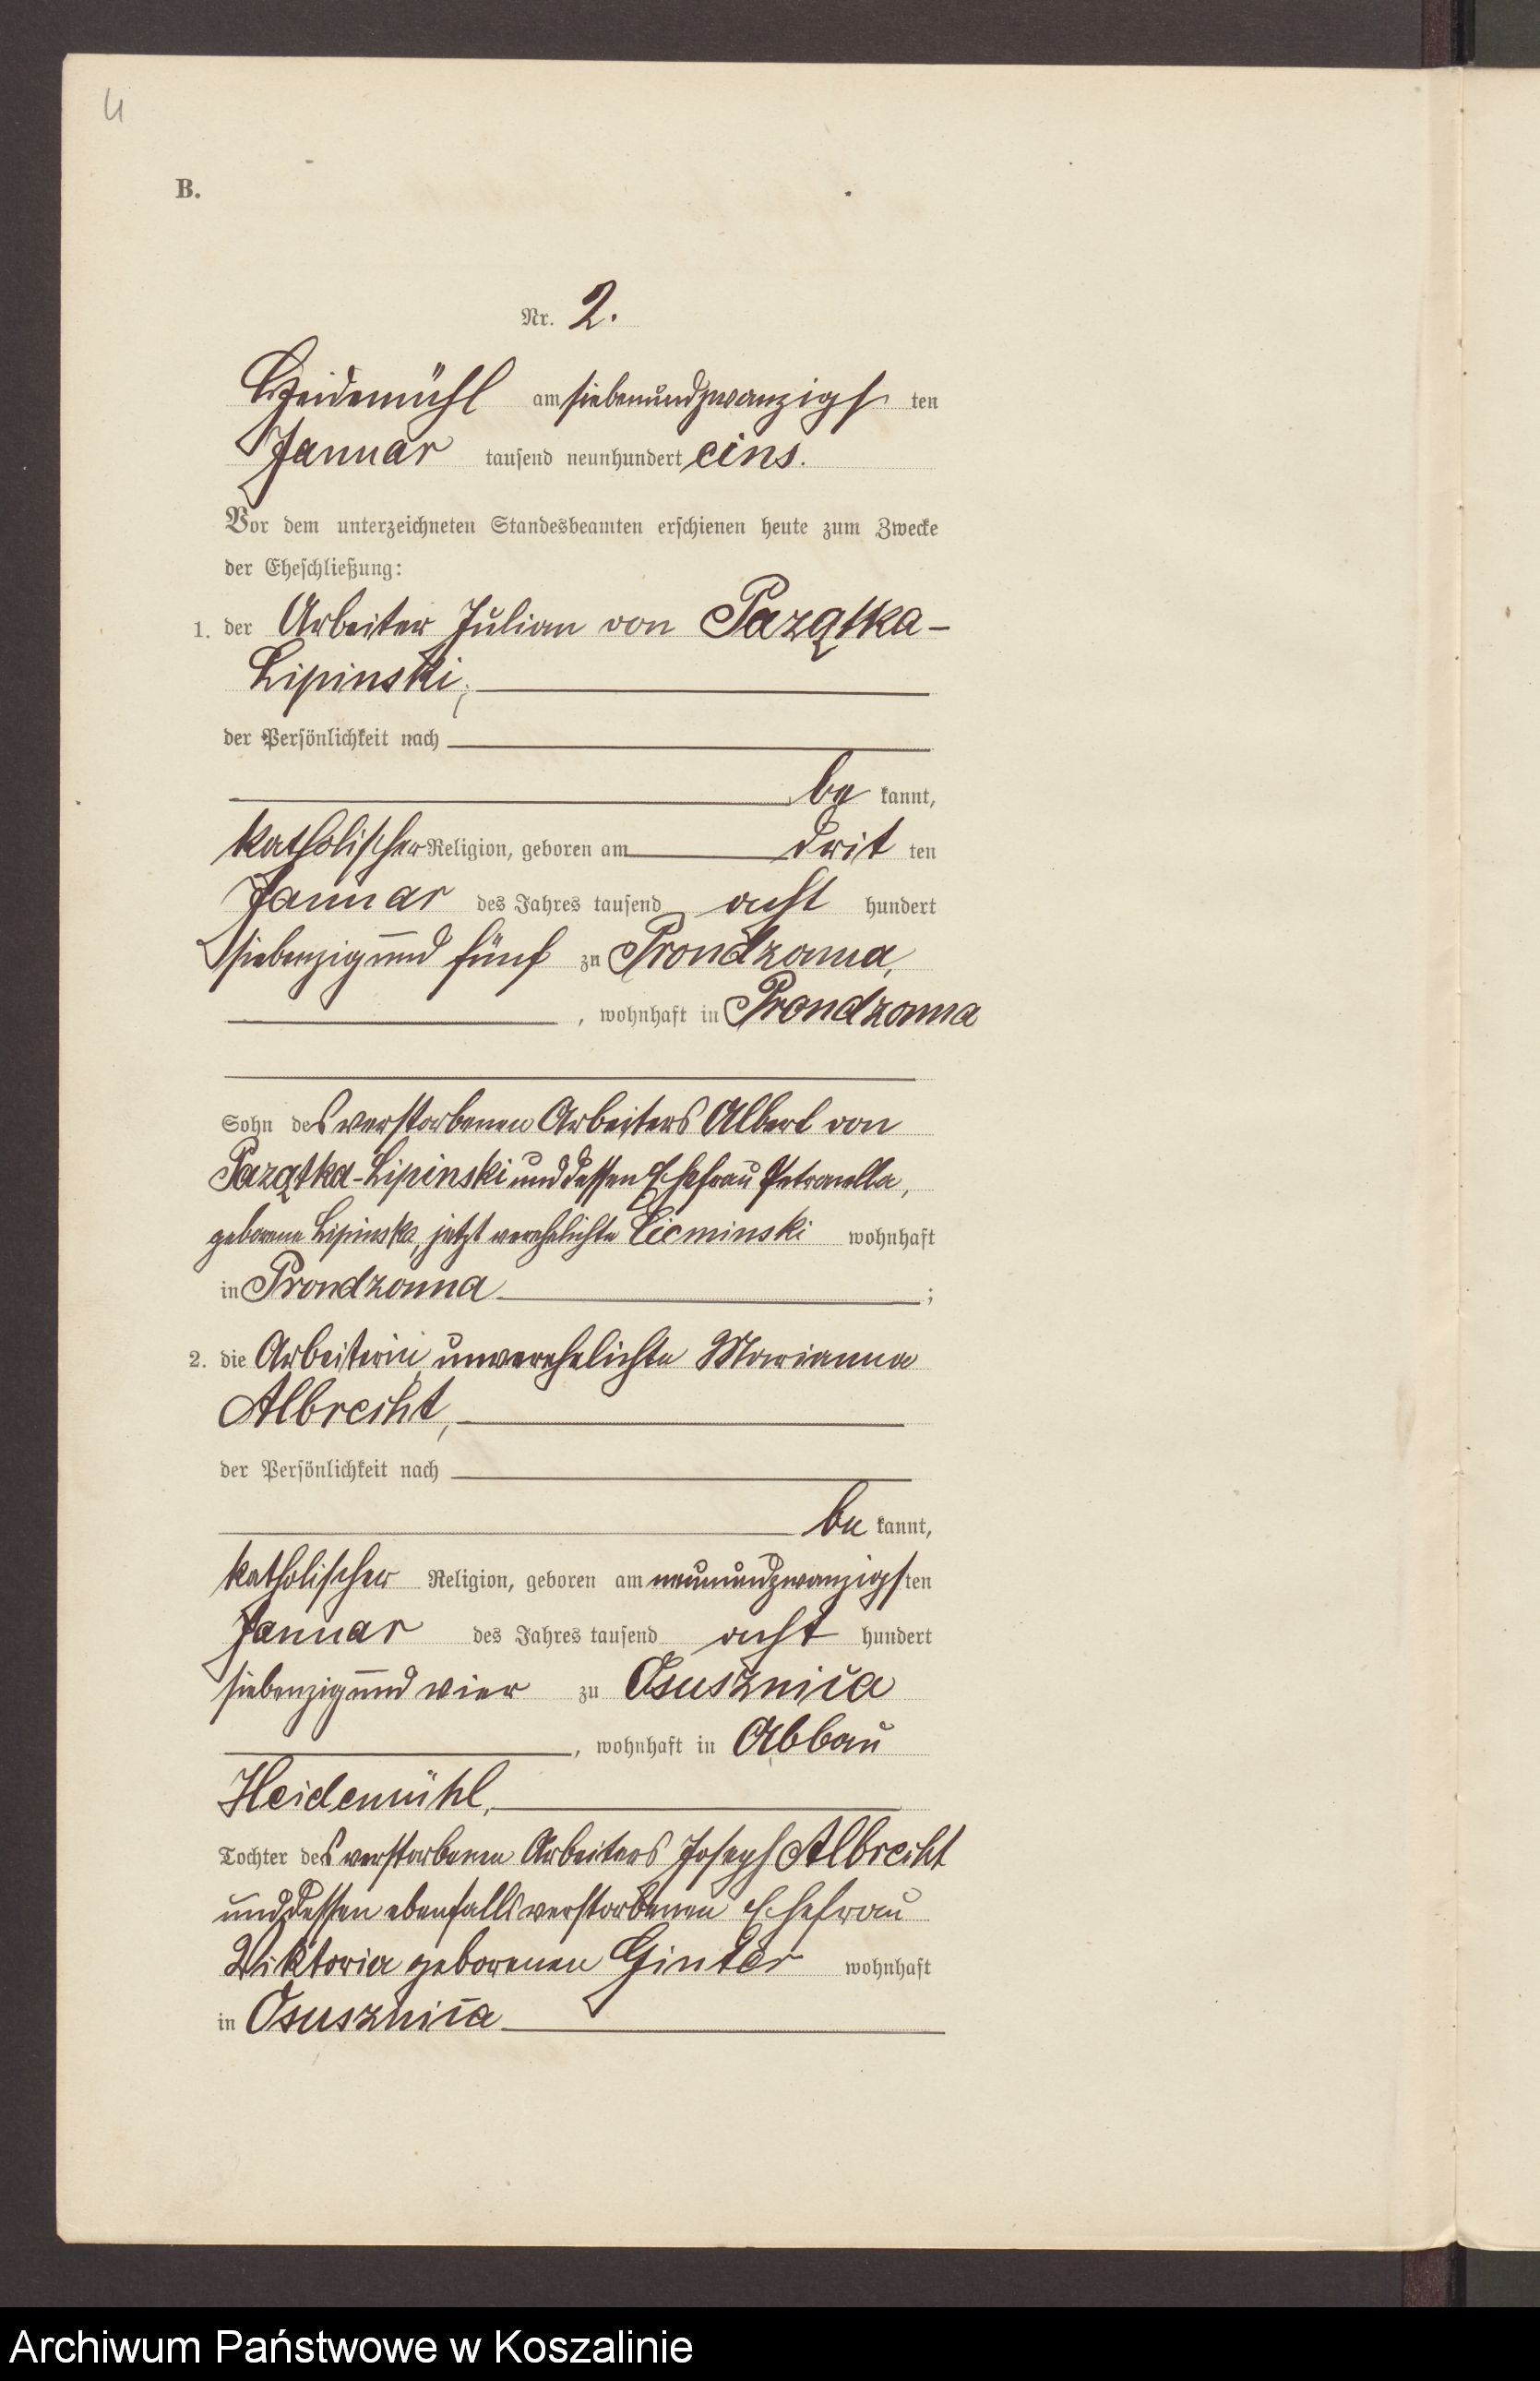 4
B.
Nr. 2.
Heidemühl am siebenundzwanzigsten
Januar tausend neunhundert eins.
Vor dem unterzeichneten Standesbeamten erschienen heute zum Zwecke
der Eheschließung:
1. der Arbeiter Julian von Pazątka-
Lipinski,
der Persönlichkeit nach
bekannt,
katholischer Religion, geboren am dritten
Januar des Jahres tausend achthundert
siebenzig und fünf zu Prondzonna,
, wohnhaft in Prondzonna
Sohn des verstorbenen Arbeiters Albert von
Pazątka-Lipinski und dessen Ehefrau Petronella,
geborene Lipinska, jetzt verehelichte Cieminski wohnhaft
in Prondzonna ;
2. die Arbeiterin, unverehelichte Marianna
Albrecht,
der Persönlichkeit nach
bekannt,
katholischer Religion, geboren am neunundzwanzigsten
Januar des Jahres tausend achthundert
siebenzig und vier zu Osusznica
, wohnhaft in Abbau
Heidemühl,
Tochter des verstorbenen Arbeiters Joseph Albrecht
und dessen ebenfalls verstorbenen Ehefrau
Viktoria geborenen Ginter wohnhaft
in Osusznica
Archiwum Państwowe w Koszalinie